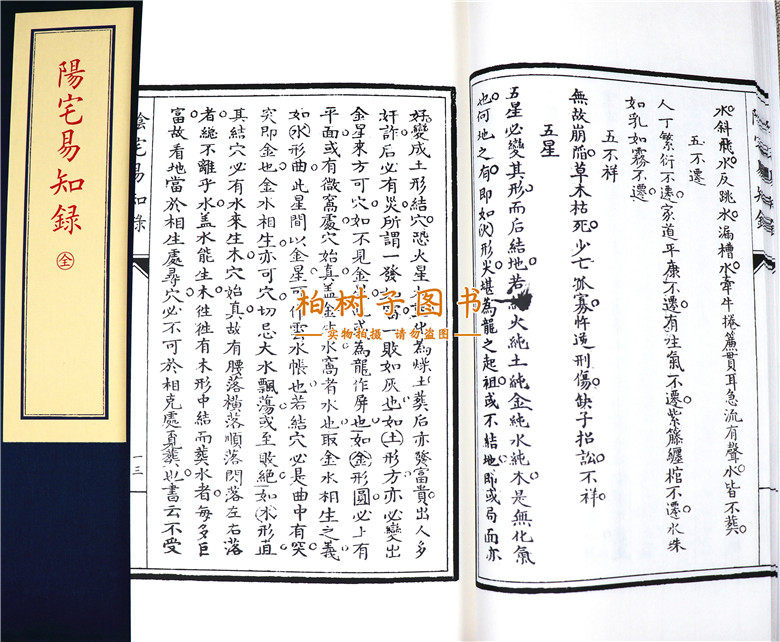 陽宅易知録
全
水斜飛水反跳水漏槽水牽牛捲簾貫耳急流有聲水皆不葬
五不遷
人丁繁衍不遷家道平康不遷有生氣不遷紫籐纏棺不遷水珠
如乳如霧不遷
五不祥
無故崩陷草木枯死少亡孤寡忤逆刑傷缺子招訟不祥
五星
五星必變其形而后結地若純火純土純金純水純木是無化氣
也何地之有即如火形尖堪為龍之起祖或不結地即或局面亦
好變成土形結穴恐火星化為燥土葬后亦發富貴出人多
奸詐后必有災所謂一發如雷一敗如灰也如土形方亦必變出
金星來方可穴如不見金或為龍作屏也如金形圓必上有
平面或有微窩處穴始真蓋金生水窩者水也取金水相生之義
如水形曲此星間以金星可作雲水帳也若結穴必是曲中有突
突即金也金水相生亦可穴切忌大水飄蕩或至敗絕如木形直
其結穴必有水來生木穴始真故有腰落橫落順落閃落左右落
者總不離乎水蓋水能生木徃徃有木形中結而葬水者每多巨
富故看地當於相生處尋穴必不可於相克處覓葬也書云不受
陰宅易知錄
一三
柏树子图书
实物拍摄 请勿盗图